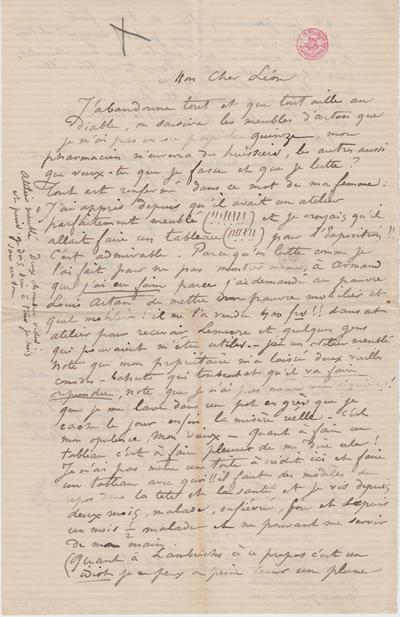 Mon Cher Léon
J'abandonne tout et que tout aille au
Diable, on saisira les meubles d'Artan que
je n'ai pas encore payé les quinze, mon
pharmacien m'enverra des huissiers, les autres aussi
que veux-tu que je fasse et que je lutte?
tout est renfermé dans ce mot de ma femme:
J'ai appris depuis qu'il avait un atelier
parfaitement meublé (!!!!!!!!) et je croyais qu'il
allait faire un tableau (!!!!!!) pour l'Exposition!!
C'est admirable. Parce qu'on lutte comme je
l'ai fait pour ne pas montrer même, à Armand
que j'ai eu faim parce j'ai demandé au pauvre
Louis Artan de mettre son pauvre mobilier et
quel mobilier! il me l'a vendu 400 frs!! dans cet
atelier pour recevoir Lemaire et quelques gens
qui pouvaient m'être utiles. – j'ai un atelier meublé
Note que mon propriétaire m'a laissé deux vieilles
comodes – bahuts qui tombent et qu'il va faire
reprendre, note que je n'ai pas même une aiguière!
que je me lave dans un pot en grès que je
cache le jour enfin la misère réelle – c'est
mon opulence mon vieux – quant à faire un
tableau c'est à faire pleurer de me dire cela!
Je n'ai pas même une toile à crédit ici et faire
un tableau avec quoi!! il faut des modèles du
repos dans la tête et la santé et je vis depuis
deux mois, malade, enfiévré, fou et depuis
un mois ½ malade et ne pouvant me servir
de ma main
(Quant à Lambrichs à propos c'est un
idiot je peux à peine tenir une plume
Atelier meublé! Deux chambres vides!